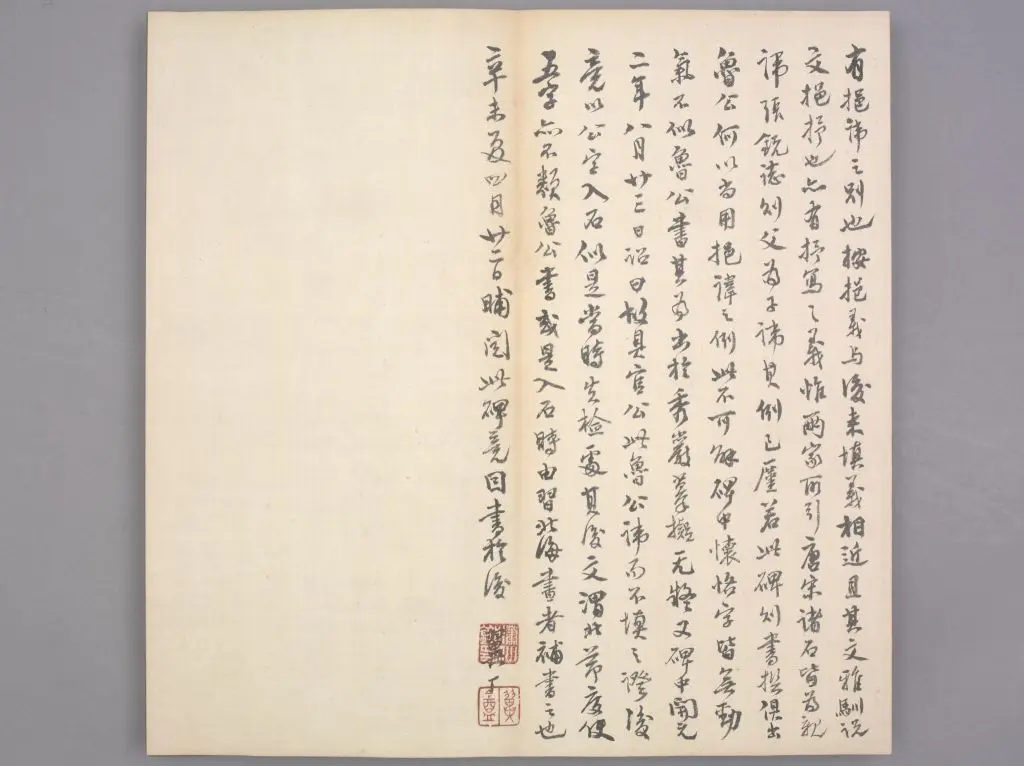 有挹諱之別也按挹義与後來填義相近且其文雅馴説
文挹抒也亦有抒寫之義惟兩家所引唐宋諸石皆為親
諱張銳誌則父為子諱其例已廑若此碑則書撰俱出
魯公何以尚用挹諱之例此不可解碑中懷悟字皆無動
氣不似魯公書其為出於秀巖摹擬无疑又碑中開元
二年八月廿三日詔曰故具官公此魯公諱而不填之證後
竟以公字入石似是當時失檢處其後文渭北節度使
五字亦不類魯公書或是入石時由習北海書者補書之也
辛未夏四月廿二日晡閲此碑竟因書於後